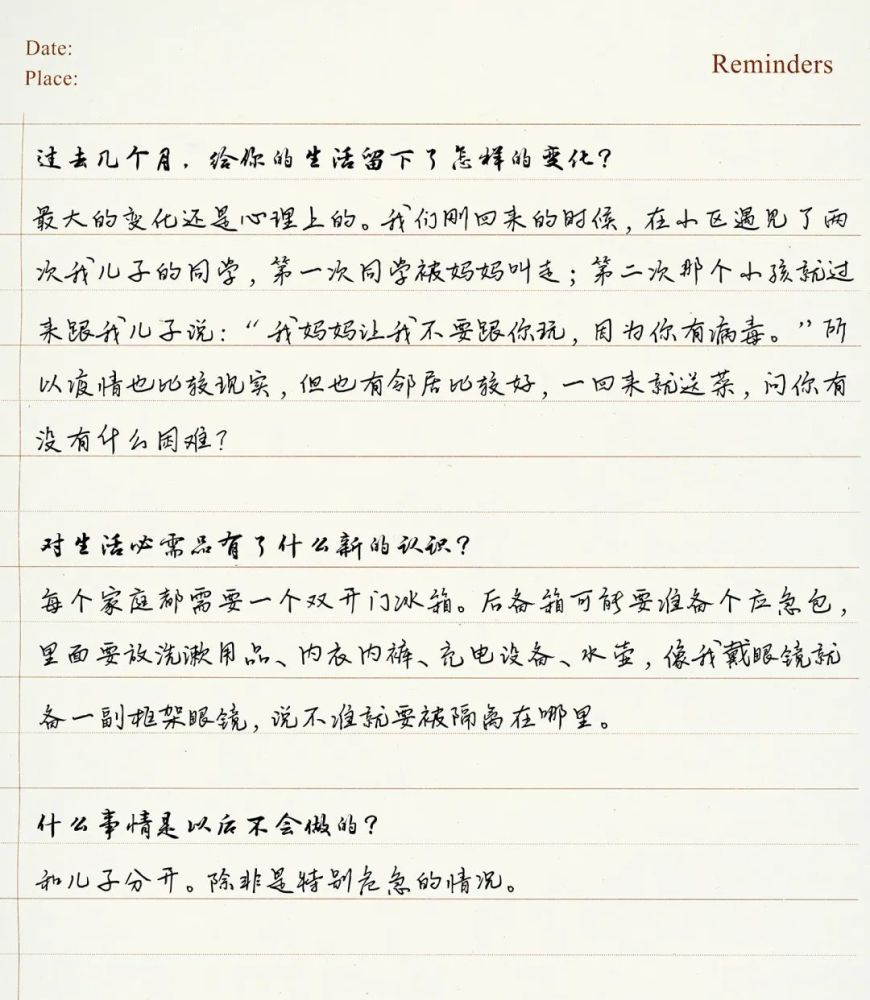 Date:
Place:
Reminders
过去几个月，给你的生活留下了怎样的变化？
最大的变化还是心理上的。我们刚回来的时候，在小区遇见了两
次我儿子的同学，第一次同学被妈妈叫走；第二次那个小孩就过
来跟我儿子说：“我妈妈让我不要跟你玩，因为你有病毒。”所
以疫情也比较现实，但也有邻居比较好，一回来就送菜，问你有
没有什么困难？
对生活必需品有了什么新的认识？
每个家庭都需要一个双开门冰箱。后备箱可能要准备个应急包，
里面要放洗漱用品、内衣内裤、充电设备、水壶，像我戴眼镜就
备一副框架眼镜，说不准就要被隔离在哪里。
什么事情是以后不会做的？
和儿子分开。除非是特别危急的情况。